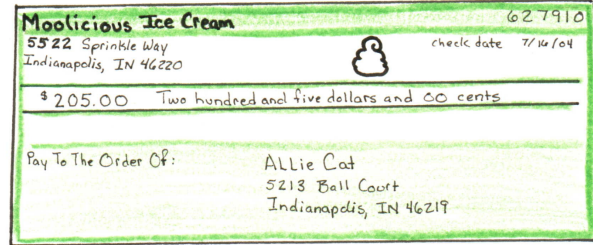 Moolicious Ice Cream 627910
5522 Sprinkle Way check date 7/16/04
Indianapolis, IN 46220
$205.00 Two hundred and five dollars and 00 cents
Pay To The Order Of: ALLie Cat
5213 Ball Court
Indianapolis, IN 46219